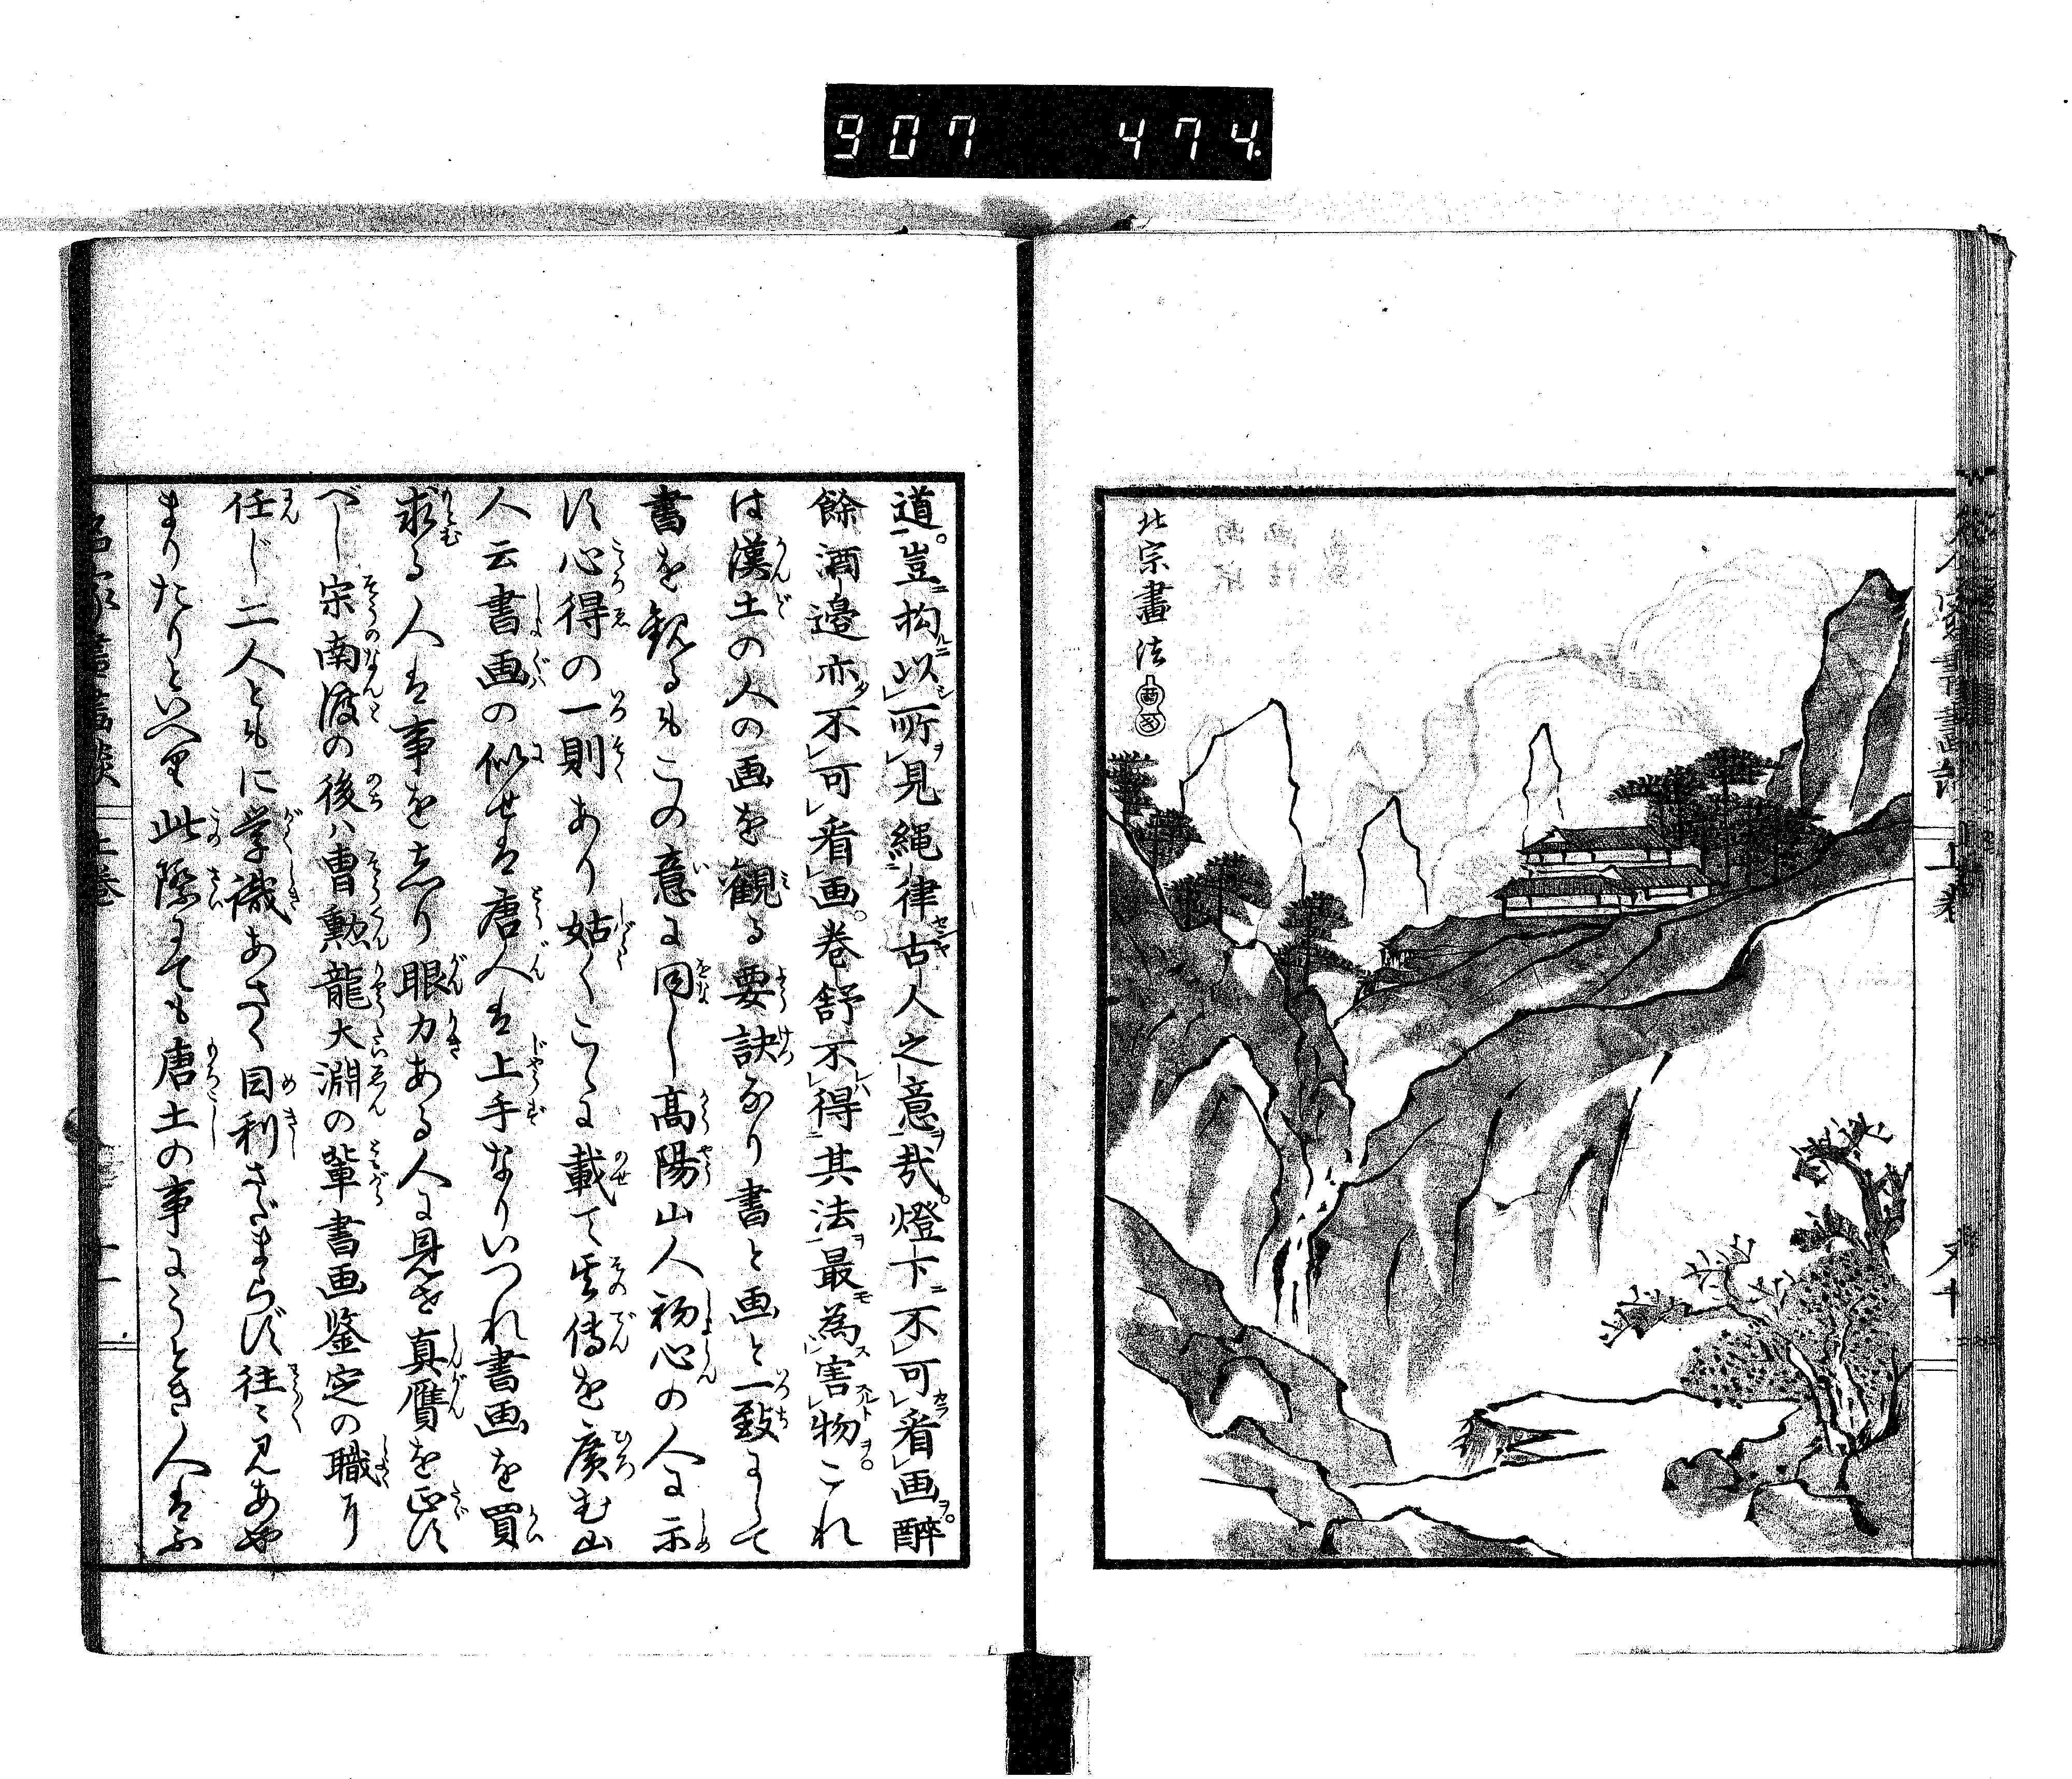 907 474
北宗畫法
上巻
道。豈拘以所見繩律古人之意哉。燈下不可看画。醉
餘酒邊亦不可看画。巻舒不得其法最為害物。これ
は漢土の人の画を観る要訣なり書と画と一致にして
書を観るもこの意に同し高陽山人初心の人に示
す心得の一則あり姑くこゝに載て其傳を廣む山
人云書画の似せは唐人は上手なりいつれ書画を買
求る人は事をしり眼力ある人に見せ真贋を正す
べし宗南渡の後ハ曹勲龍大淵の輩書画鑒定の職に
任じ二人ともに学識あさく目利さだまらず往〻見あや
まりたりといへり此際にても唐土の事にうとき人はふ
上巻